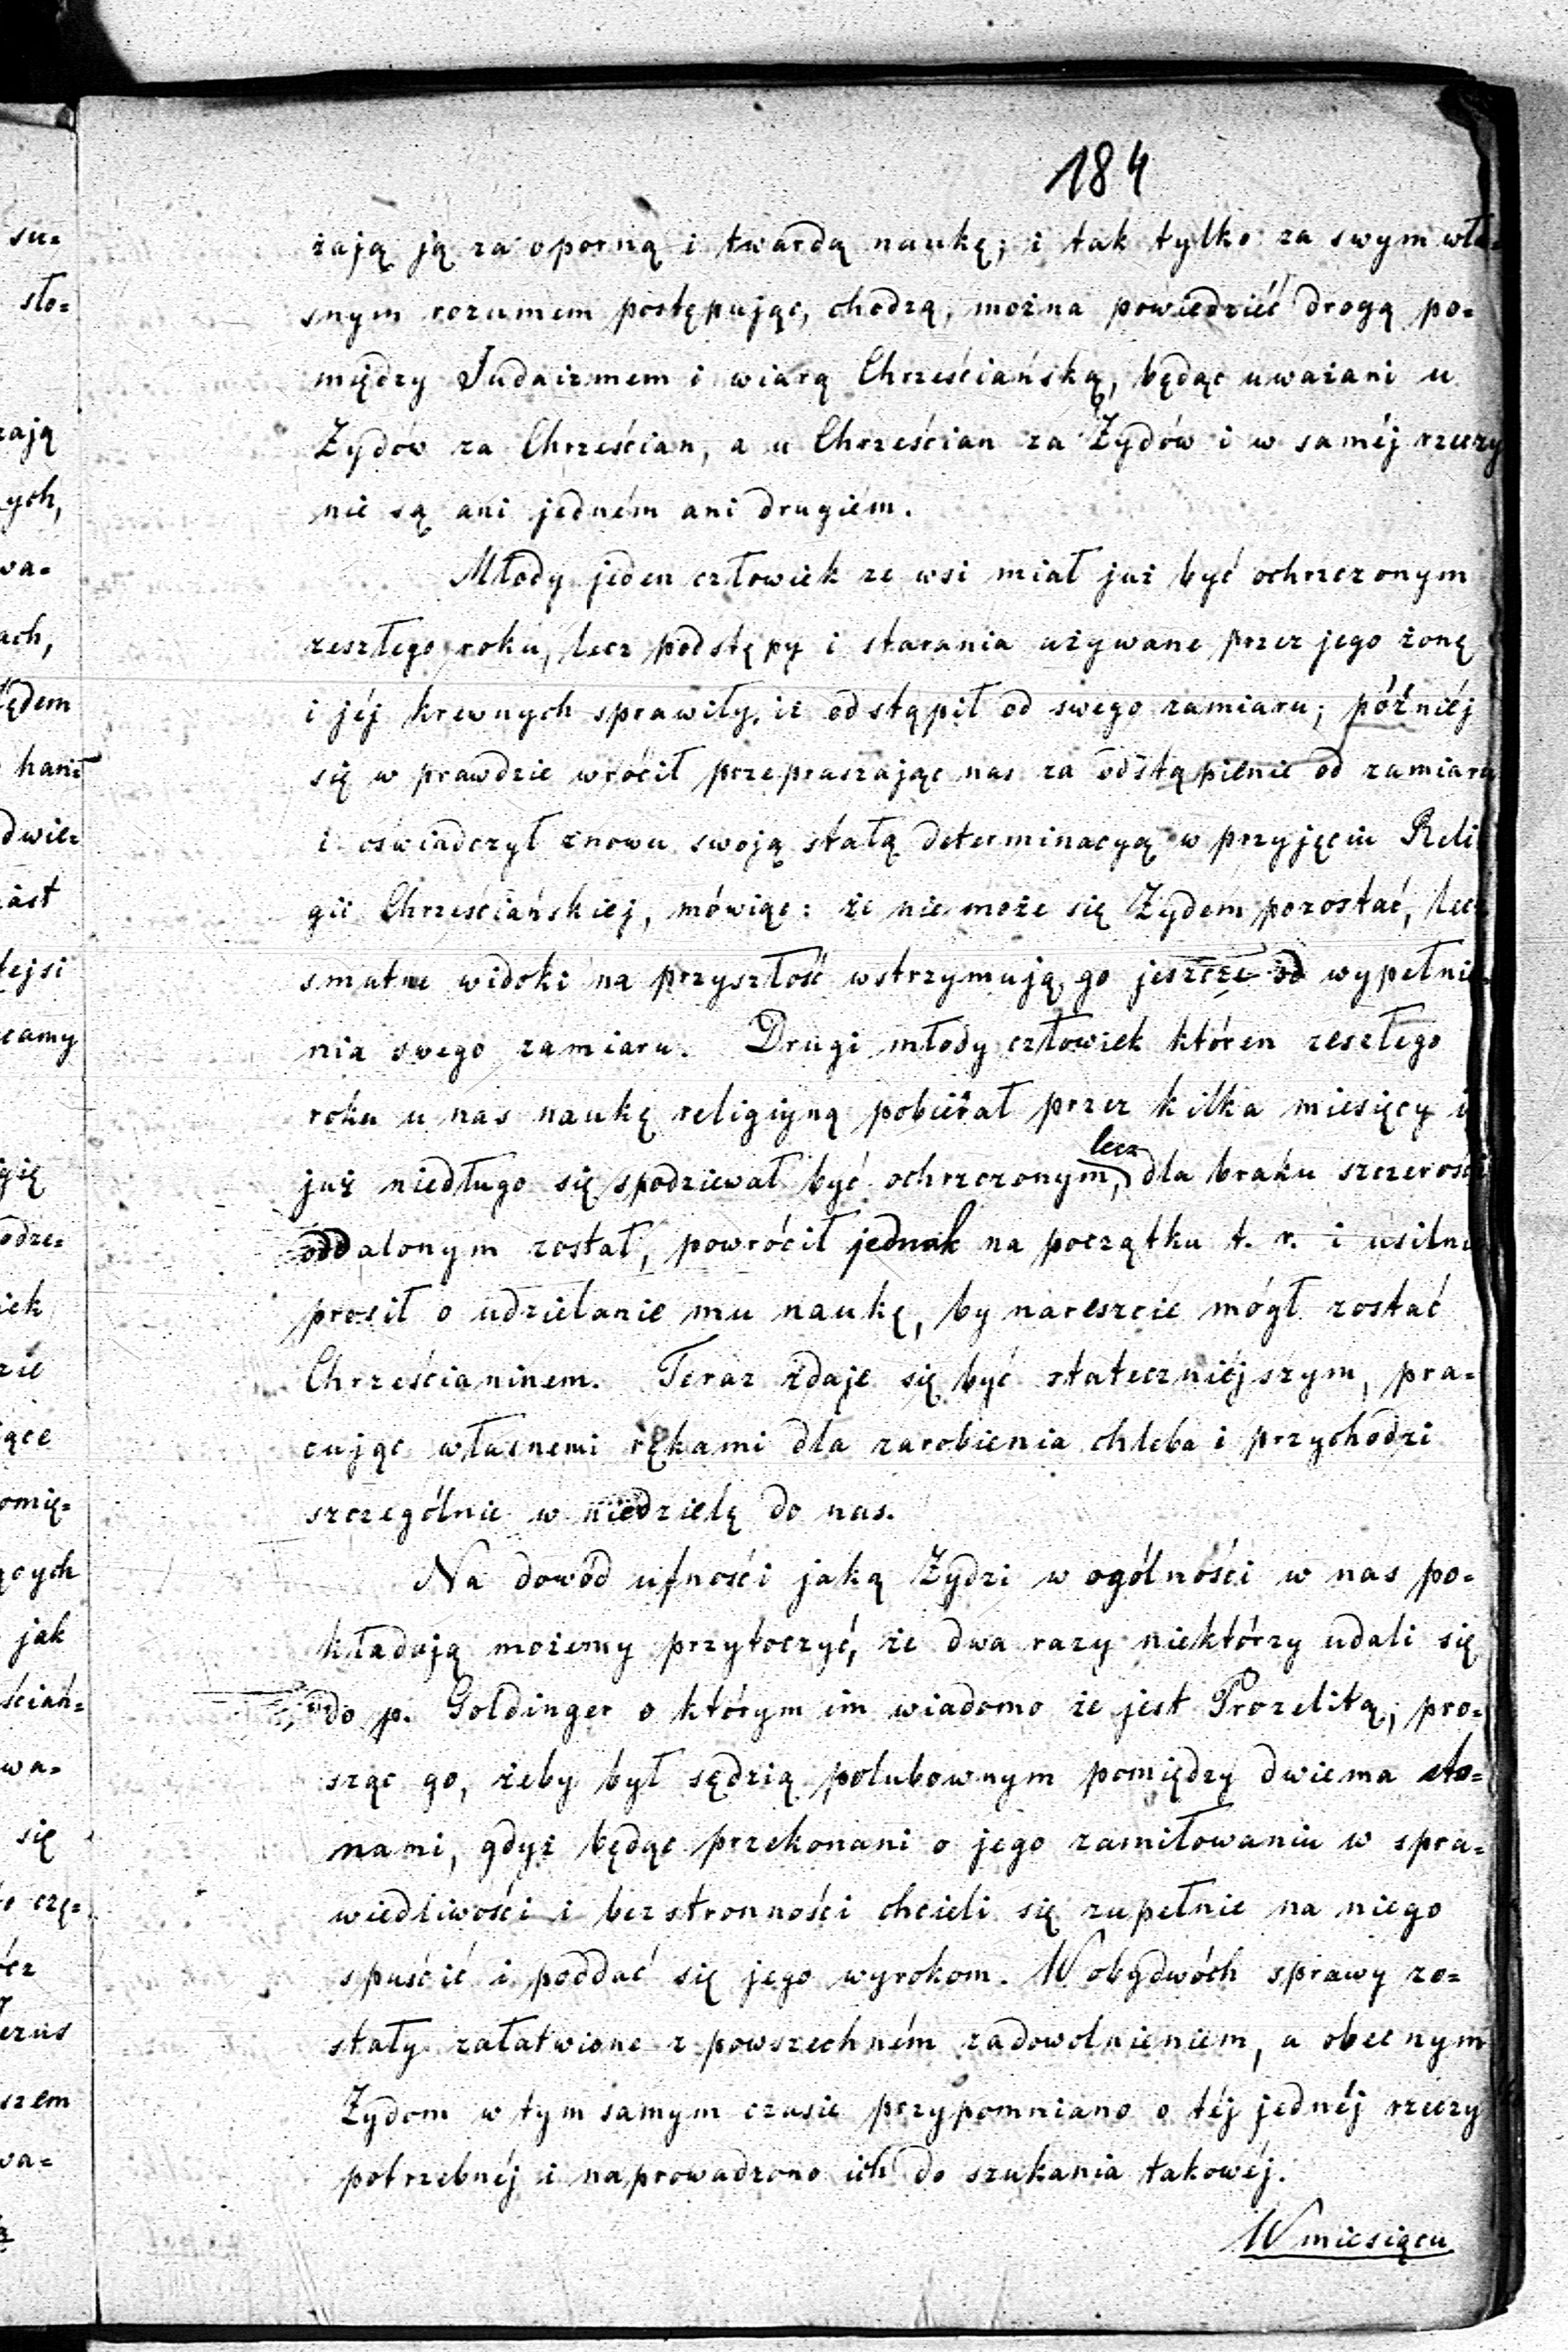 184
żają ją za oporną i twardą naukę; i tak tylko za swym wła-
snym rozumem postępując, chodzą, można powiedzieć drogą po=
między Judaizmem i wiarą Chrześciańską, będąc uważani u
Żydów za Chrześcian, a u Chrześcian za Żydów i w saméj rzeczy
nie są ani jedném ani drugiém.
Młody jeden człowiek ze wsi miał już być ochrzczonym
zeszłego roku, lecz podstępy i starania używane przez jego żonę
i jéj krewnych sprawiły, iż odstąpił od swego zamiaru; późniéj
się w prawdzie wrócił przepraszając nas za odstąpienie od zamiaru
i oświadczył znowu swoją stałą determinacyą w przyjęciu Reli
gii Chrześciańskiej, mówiąc: że nie może się Żydem pozostać, lecz
smutne widoki na przyszłość wstrzymują go jeszcze od wypełnie=
nia swego zamiaru. Drugi młody człowiek któren zeszłego
roku u nas naukę religiyną pobierał przez kilka miesięcy i
lecz
już niedługo się spodziewał być ochrzczonym, dla braku szczerości
oddalonym został, powrócił jednak na początku t. r. i usilnie
prosił o udzielanie mu naukę, by nareszcie mógł zostać
Chrześcianinem. Teraz zdaje się być stateczniéjszym, pra=
cując własnemi rękami dla zarobienia chleba i przychodzi
szczególnie w niedzielę do nas.
Na dowód ufności jaką Żydzi w ogólności w nas po=
kładają możemy przytoczyć, że dwa razy niektórzy udali się
do p. Goldinger o którym im wiadomo że jest Prozelitą; pro=
sząc go, żeby był sędzią polubownym pomiędzy dwiema sto=
nami, gdyż będąc przekonani o jego zamiłowaniu w spra=
wiedliwości i bezstronności chcieli się zupełnie na niego
spuścić i poddać się jego wyrokom. W obydwóch sprawy zo=
stały załatwione z powszechném zadowolnieniem, a obecnym
Żydom w tym samym czasie przypomniano o téj jednéj rzeczy
potrzebnéj i naprowadzono ich do szukania takowéj.
W miesiącu